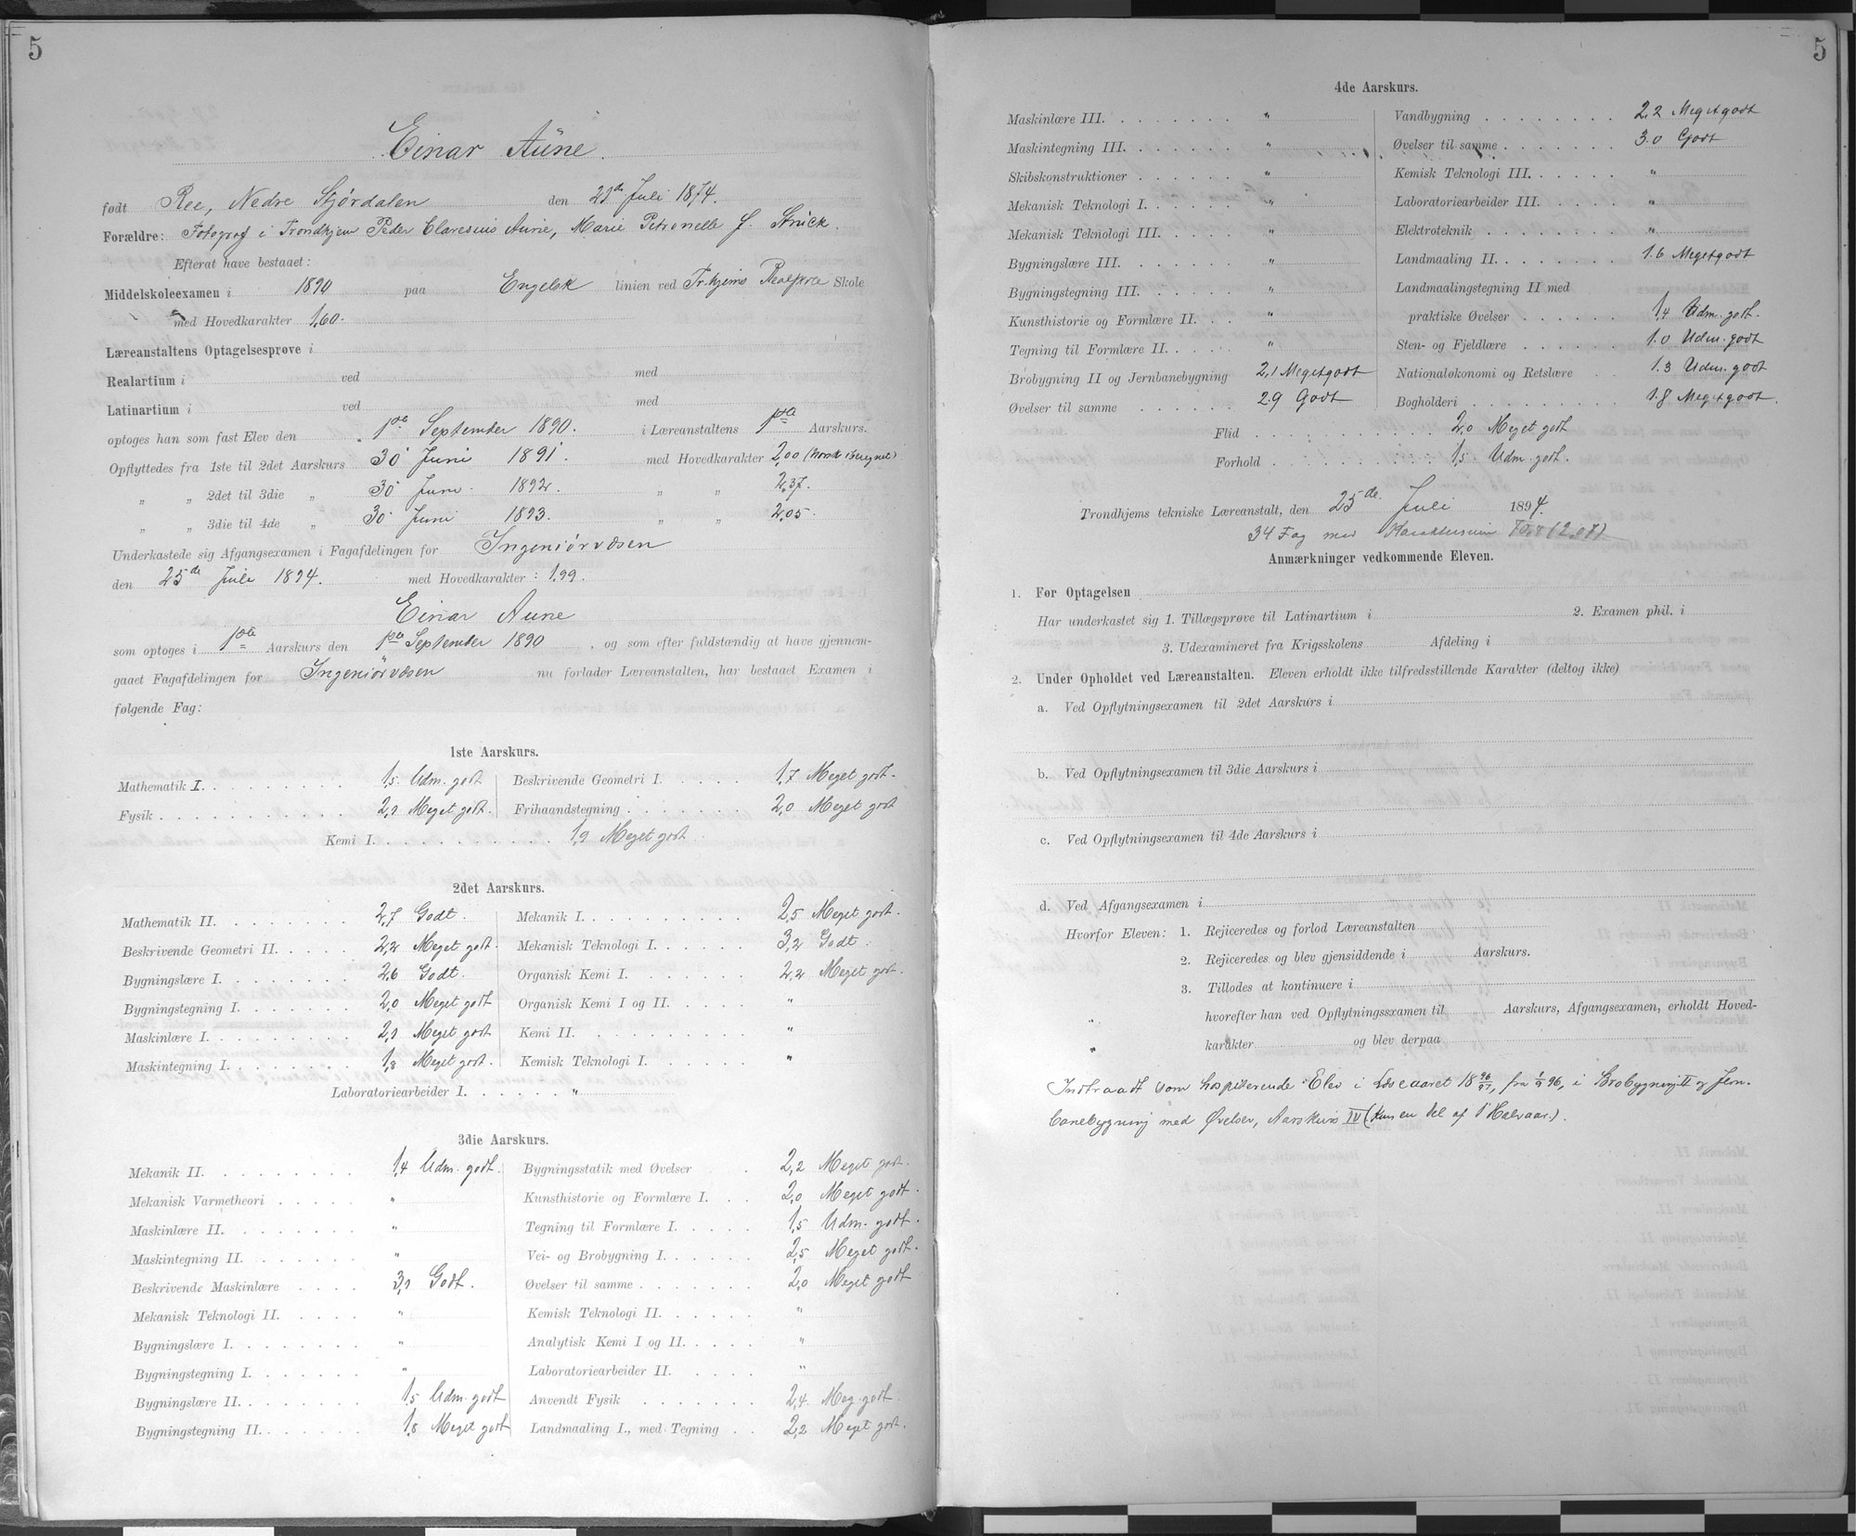 5
Einar Aune.
født Ree, Nedre Stjørdalen den 23de Juli 1874.
Forældre: Fotograf i Trondhjem Peder Claresius Aune, Marie Petronelle f. Strück.
Efterat have bestaaet:
Middelskoleexamen i 1890 paa Engelsk linien ved Tr.hjems Skole
med Hovedkarakter 1,60.
Læreanstaltens Optagelsesprøve i
Realartium i ved med
Latinartium i ved med
optoges han som fast Elev den 1ste September 1890. i Læreanstaltens 1ste Aarskurs.
Opflyttedes fra 1ste til 2det Aarskurs 30 Juni 1891. med Hovedkarakter 2,00
„ „ 2det til 3die „ 30 Juni 1892. „ „ 2,37.
„ „ 3die til 4de „ 30 Juni 1893. „ „ 2,05.
Underkastede sig Afgangsexamen i Fagafdelingen for Ingeniørvæsen
den 25de Juli 1894. med Hovedkarakter: 1,99.
Einar Aune
som optoges i 1ste Aarskurs den 1ste September 1890, og som efter fuldstændig at have gjennem-
gaaet Fagafdelingen for Ingeniørvæsen nu forlader Læreanstalten, har bestaaet Examen i
følgende Fag:
1ste Aarskurs.
Mathematik I. 1,5 Udm. godt Beskrivende Geometri I. 1,7 Meget godt.
Fysik 2,1 Meget godt. Frihaandstegning 2,0 Meget godt
Kemi I. 1,9 Meget godt
2det Aarskurs.
Mathematik II. 2,7 Godt. Mekanik I. 2,5 Meget godt.
Beskrivende Geometri II. 2,2 Meget godt. Mekanisk Teknologi I. 3,2 Godt.
Bygningslære I. 2,6 Godt. Organisk Kemi I. 2,2 Meget godt.
Bygningstegning I. 2,0 Meget godt Organisk Kemi I og II. „
Maskinlære I. 2,1 Meget godt Kemi II. „
Maskintegning I. 1,8 Meget godt. Kemisk Teknologi I. „
Laboratoriearbeider I. „
3die Aarskurs.
Mekanik II. 1,4 Udm. godt. Bygningsstatik med Øvelser 2,2 Meget godt.
Mekanisk Varmetheori „ Kunsthistorie og Formlære I. 2,0 Meget godt.
Maskinlære II. „ Tegning til Formlære I. 1,5 Udm. godt.
Maskintegning II. „ Vei- og Brobygning I. 2,5 Meget godt.
Beskrivende Maskinlære 3,1 Godt. Øvelser til samme 2,0 Meget godt
Mekanisk Teknologi II. „ Kemisk Teknologi II. „
Bygningslære I. „ Analytisk Kemi I og II. „
Bygningstegning I. „ Laboratoriearbeider II. „
Bygningslære II. 1,5 Udm. godt Anvendt Fysik 2,4 Meg. godt
Bygningstegning II. 1,8 Meget godt Landmaaling I., med Tegning 2,2 Meget godt.
5
4de Aarskurs.
Maskinlære III. „ Vandbygning 2,2 Megetgodt
Maskintegning III. „ Øvelser til samme 3.0 Godt
Skibskonstruktioner „ Kemisk Teknologi III. „
Mekanisk Teknologi I. „ Laboratoriearbeider III. „
Mekanisk Teknologi III. „ Elektroteknik „
Bygningslære III. „ Landmaaling II. 1.6 Megetgodt
Bygningstegning III. „ Landmaalingstegning II med
Kunsthistorie og Formlære II. „ praktiske Øvelser 1,4 Udm. godt.
Tegning til Formlære II. „ Sten- og Fjeldlære 1.0 Udm. godt
Brobygning II og Jernbanebygning 2,1 Megetgodt Nationaløkonomi og Retslære 1.3 Udm. godt
Øvelser til samme 2.9 Godt Bogholderi 1.8 Megetgodt.
Flid 2,0 Meget godt
Forhold 1,5 Udm. godt.
Trondhjems tekniske Læreanstalt, den 25de Juli 1894.
34 Fag med Karaktersum
Anmærkninger vedkommende Eleven.
1. Før Optagelsen
Har underkastet sig 1. Tillægsprøve til Latinartium i 2. Examen phil. i
3. Udexamineret fra Krigsskolens Afdeling i
2. Under Opholdet ved Læreanstalten. Eleven erholdt ikke tilfredsstillende Karakter (deltog ikke)
a. Ved Opflytningsexamen til 2det Aarskurs i
b. Ved Opflytningsexamen til 3die Aarskurs i
c. Ved Opflytningsexamen til 4de Aarskurs i
d. Ved Afgangsexamen i
Hvorfor Eleven: 1. Rejiceredes og forlod Læreanstalten
2. Rejiceredes og blev gjensiddende i Aarskurs.
3. Tillodes at kontinuere i
„ hvorefter han ved Opflytningssxamen til Aarskurs, Afgangsexamen, erholdt Hoved-
„ karakter og blev derpaa
Indtraadt som hospiterende Elev i Læseaaret 1896/97, fra 1/9 96, i Brobygning II og Jern-
banebygning med Øvelser, Aarskurs IV (kun en del af 1' Halvaar.).